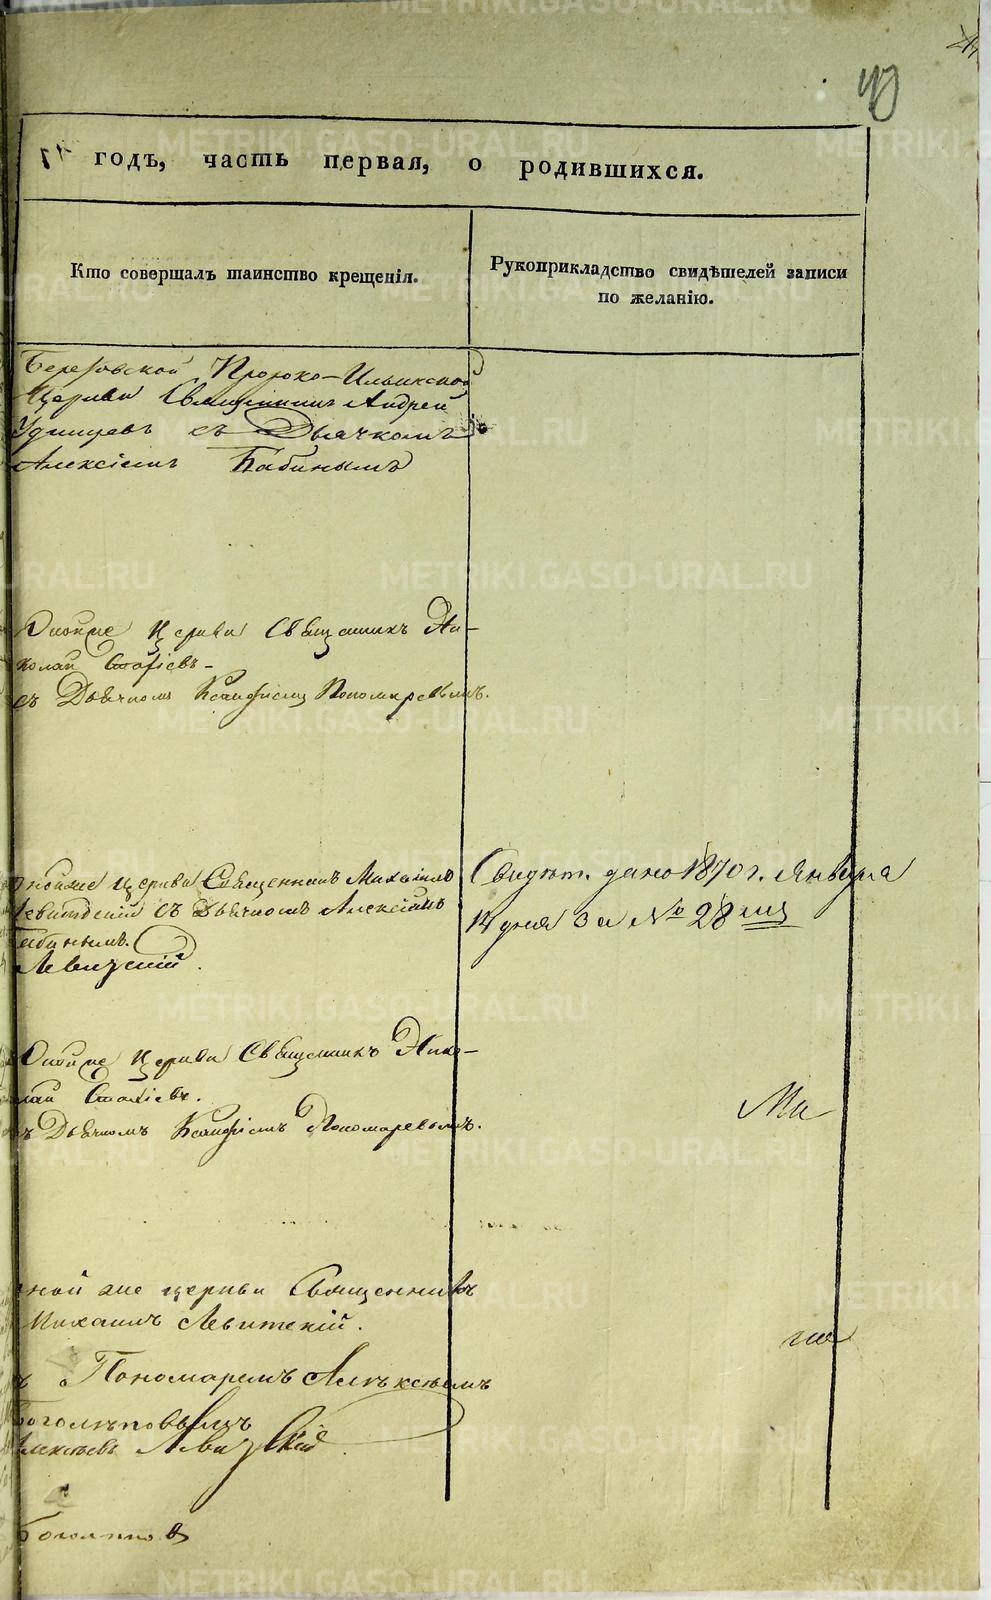 годъ, часть первая, о родившихся.
Кто совершалъ таинство крещенія.
Рукоприкладство свидѣтелей записи
по желанію.
Березовской Пророко-Ильинской
Церкви Священникъ Андрей
Удинцевъ съ Дьячкомъ
Алексіемъ Бабинымъ
Оной же Церкви Священникъ Ни-
колай
съ Дьячкомъ Ксанфіемъ Пономаревымъ.
оной же церкви Священникъ Михаилъ
Левитскій съ Дьячкомъ Алексіемъ
Бабинымъ.
Левитскій.
Свидѣт. дано 1870 г. Января
14 дня за № 28 мъ
Оной же Церкви Священникъ Нико-
лай
съ Дьячкомъ Ксанфіемъ Пономаревымъ.
Ма
оной же церкви Священникъ
Михаилъ Левитскій.
съ Пономаремъ Алексѣемъ
Боголѣповымъ
Левитскій
Боголѣповъ
METRIKI.GASO-URAL.RU